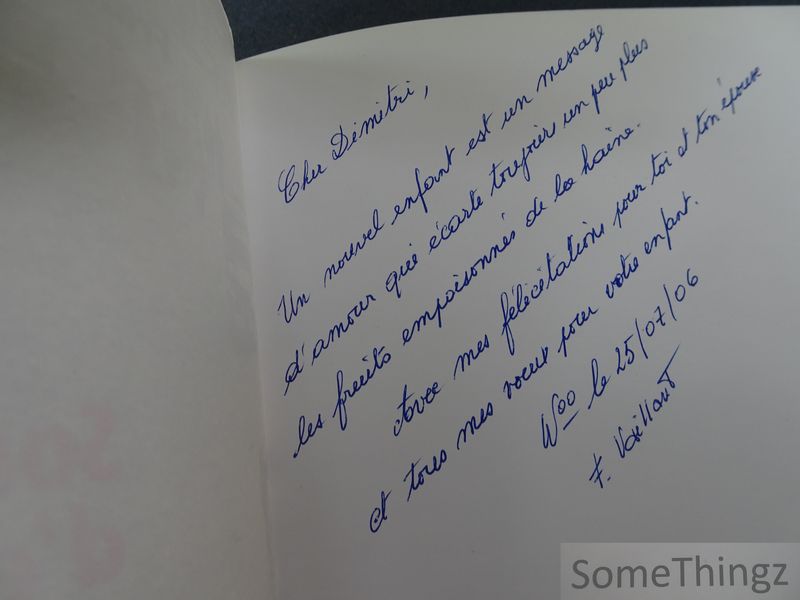 Cher Dimitri,
Un nouvel enfant est un message
d'amour qui écarte toujours un peu plus
les fruits empoisonnés de la haine.
Avec mes félicitations pour toi et ton épouse
et tous mes voeux pour votre enfant.
Woo le 25/07/06
F. Vaillant
SomeThingz